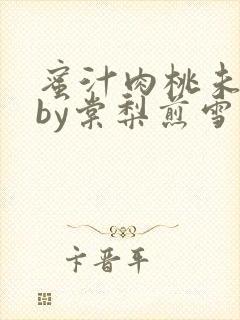 蜜汁肉桃未
by棠梨煎雪
卡晋平